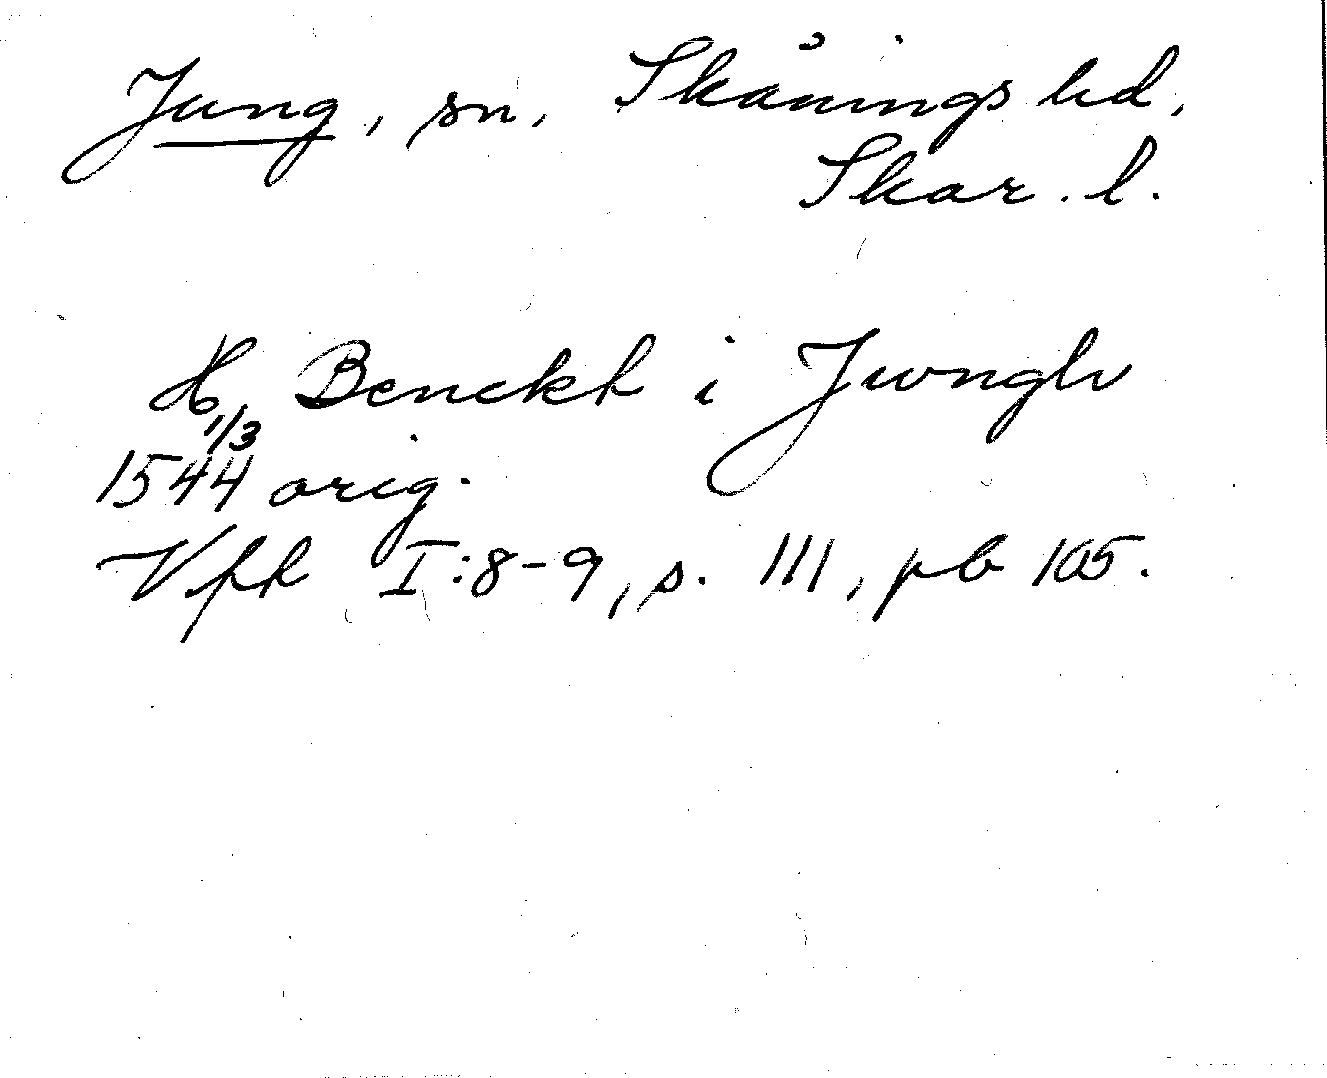 Jung, sn, Skånings hd,
Skar. l.
H. Benckt i Jwngh
1/3
1544 orig.
Vfh I:8-9, s. 111, pb 105.